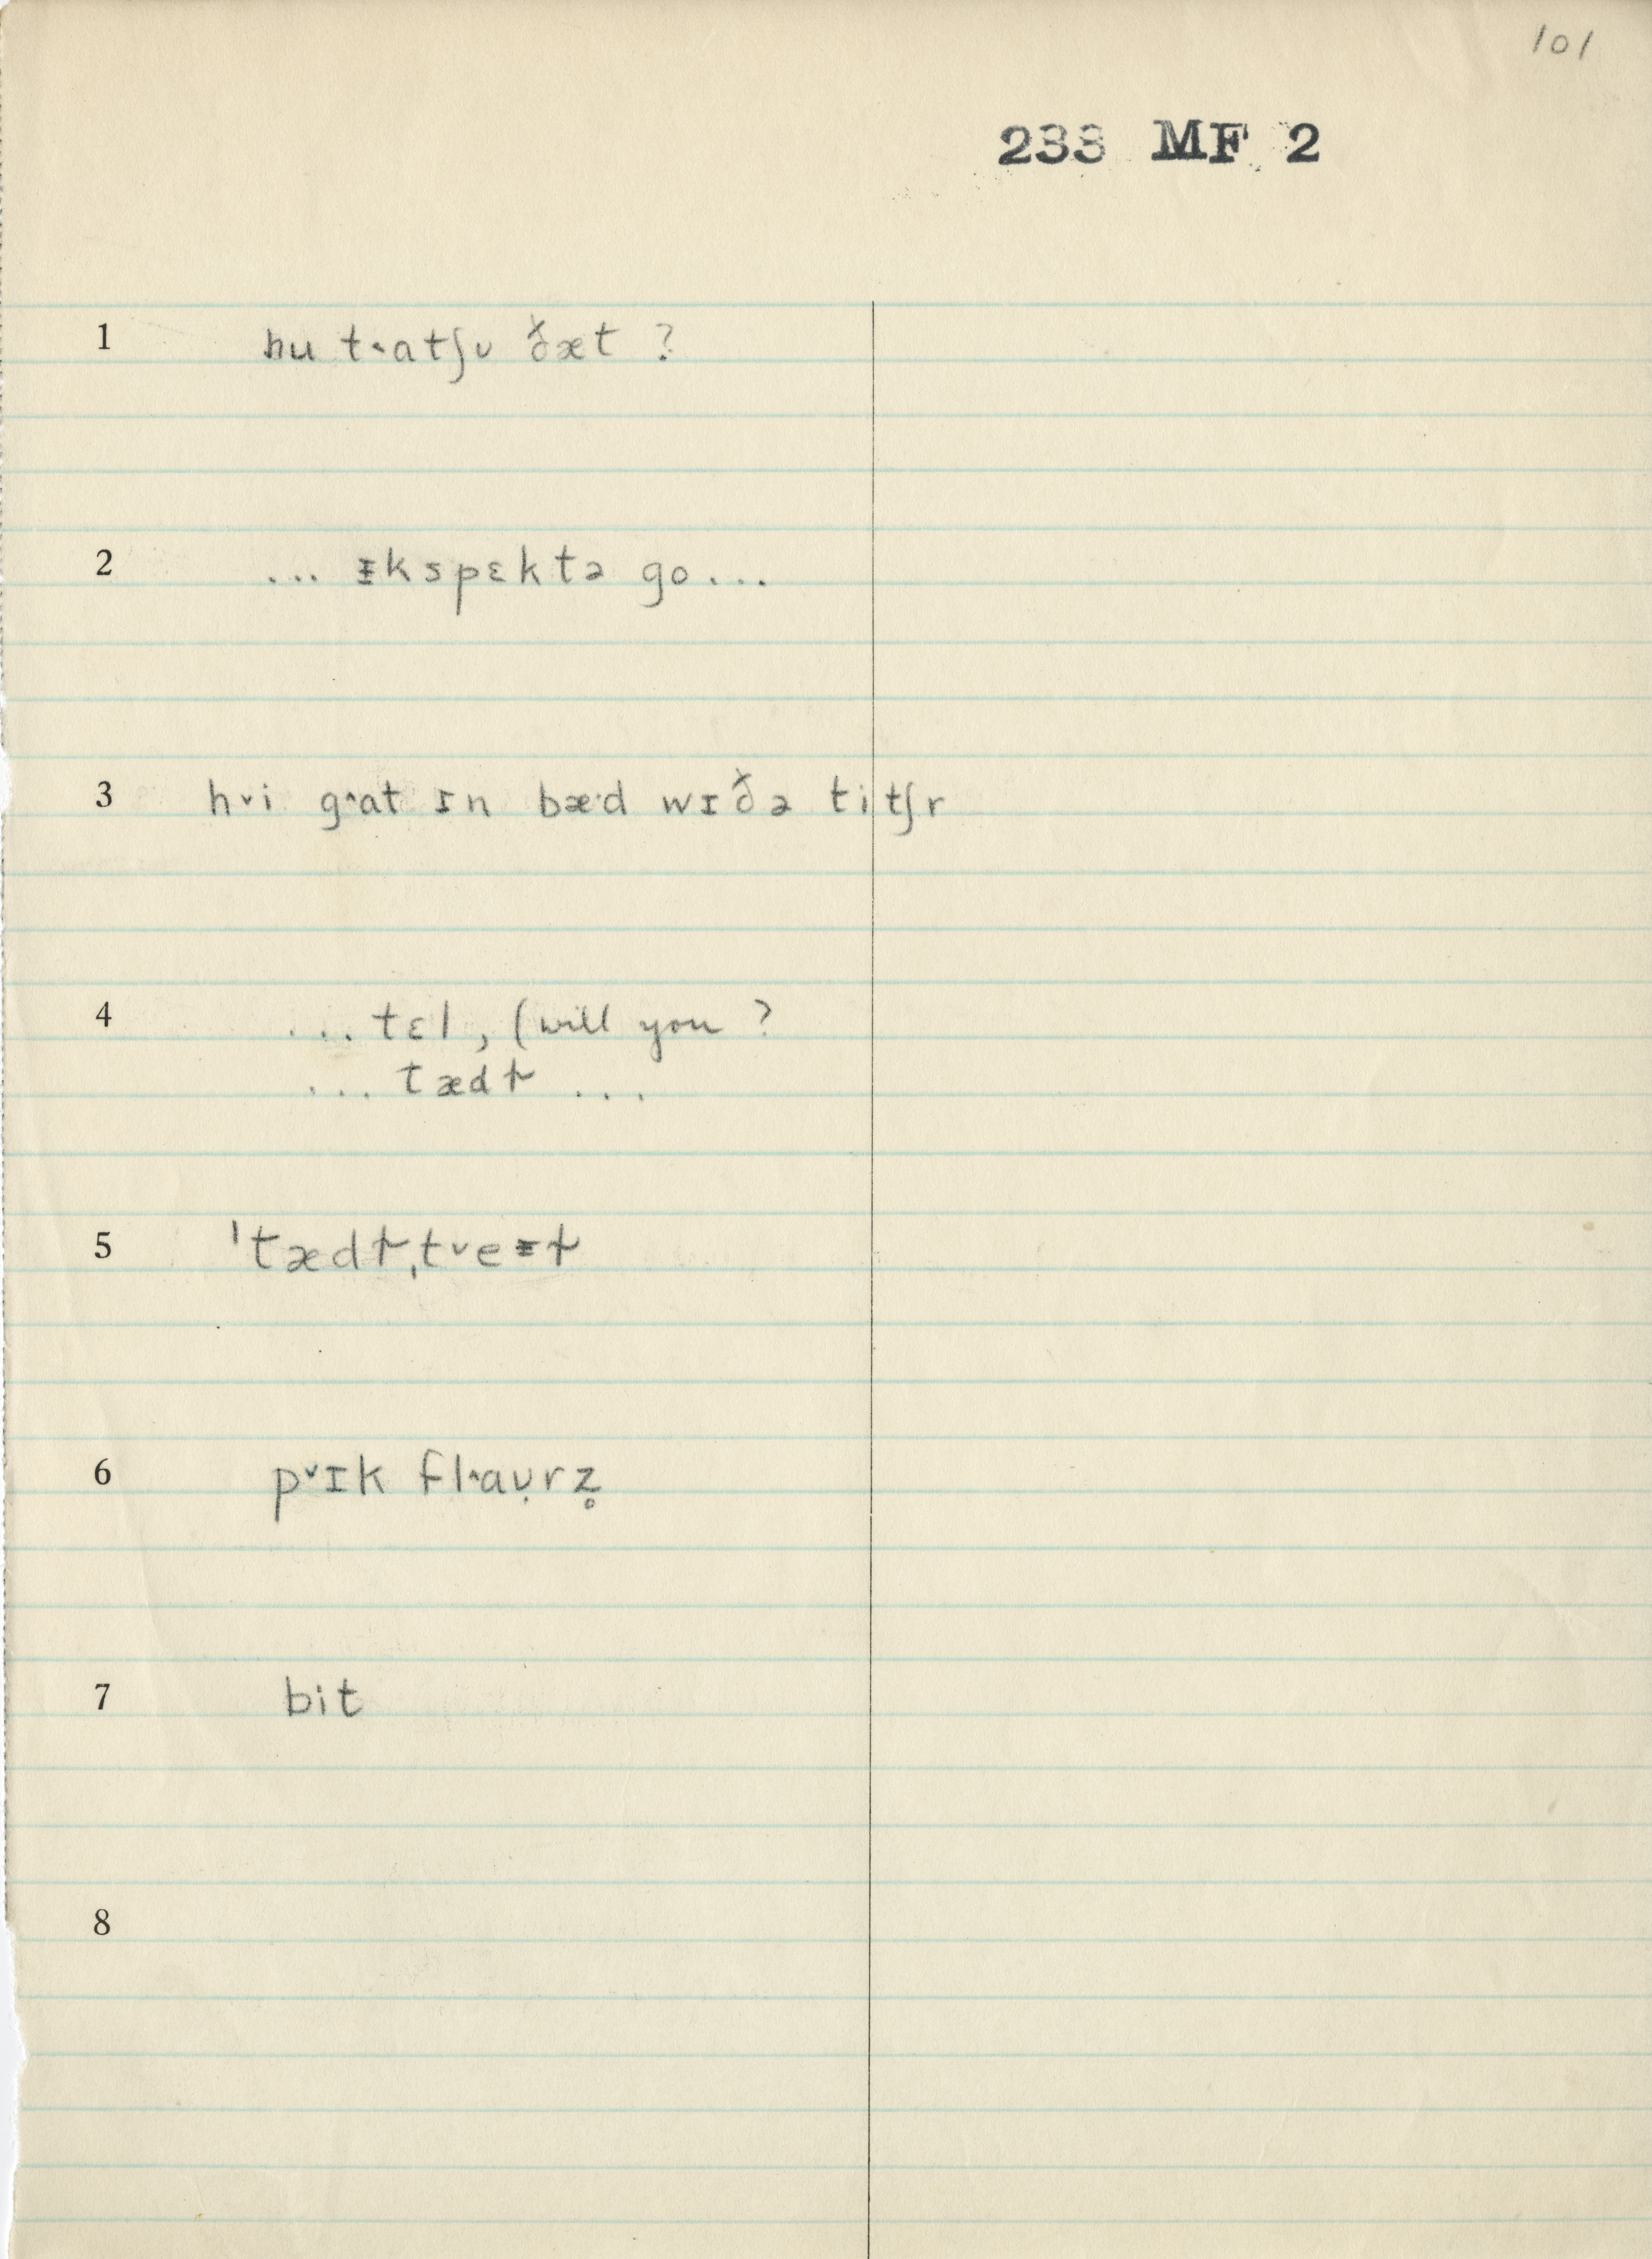 101
233 MF 2
1 hu t˂atʃʊ ðæt ?
2 ... ᵻkspɛktə go...
3 h˅i g˄at ɪn bæ·d wɪðə titʃr
4 ... tɛl, (will you ?
... tædɫ ...
5 ˈtædɫˌt˅eᵻɫ
6 p˅ɪk fl˄aʊ̣rz̥
7 bit
8